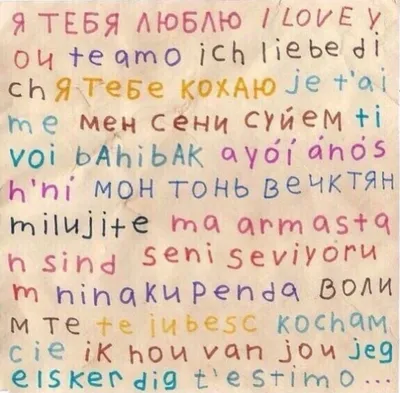 Я ТЕБЯ ЛЮБЛЮ I LOVE Y
OU te amo ich liebe di
ch Я ТЕБЕ КОХАЮ je t'ai
me мен сени суйем ti
voi bAhibAK ayóí ánós
h'ní МОН ТОНЬ ВЕЧКТЯН
milujite ma armasta
n sind seni seviyoru
m ninakupenda ВОЛИ
М ТЕ te iubesc kocham
cie ik hou van jou jeg
elsker dig t'estimo...